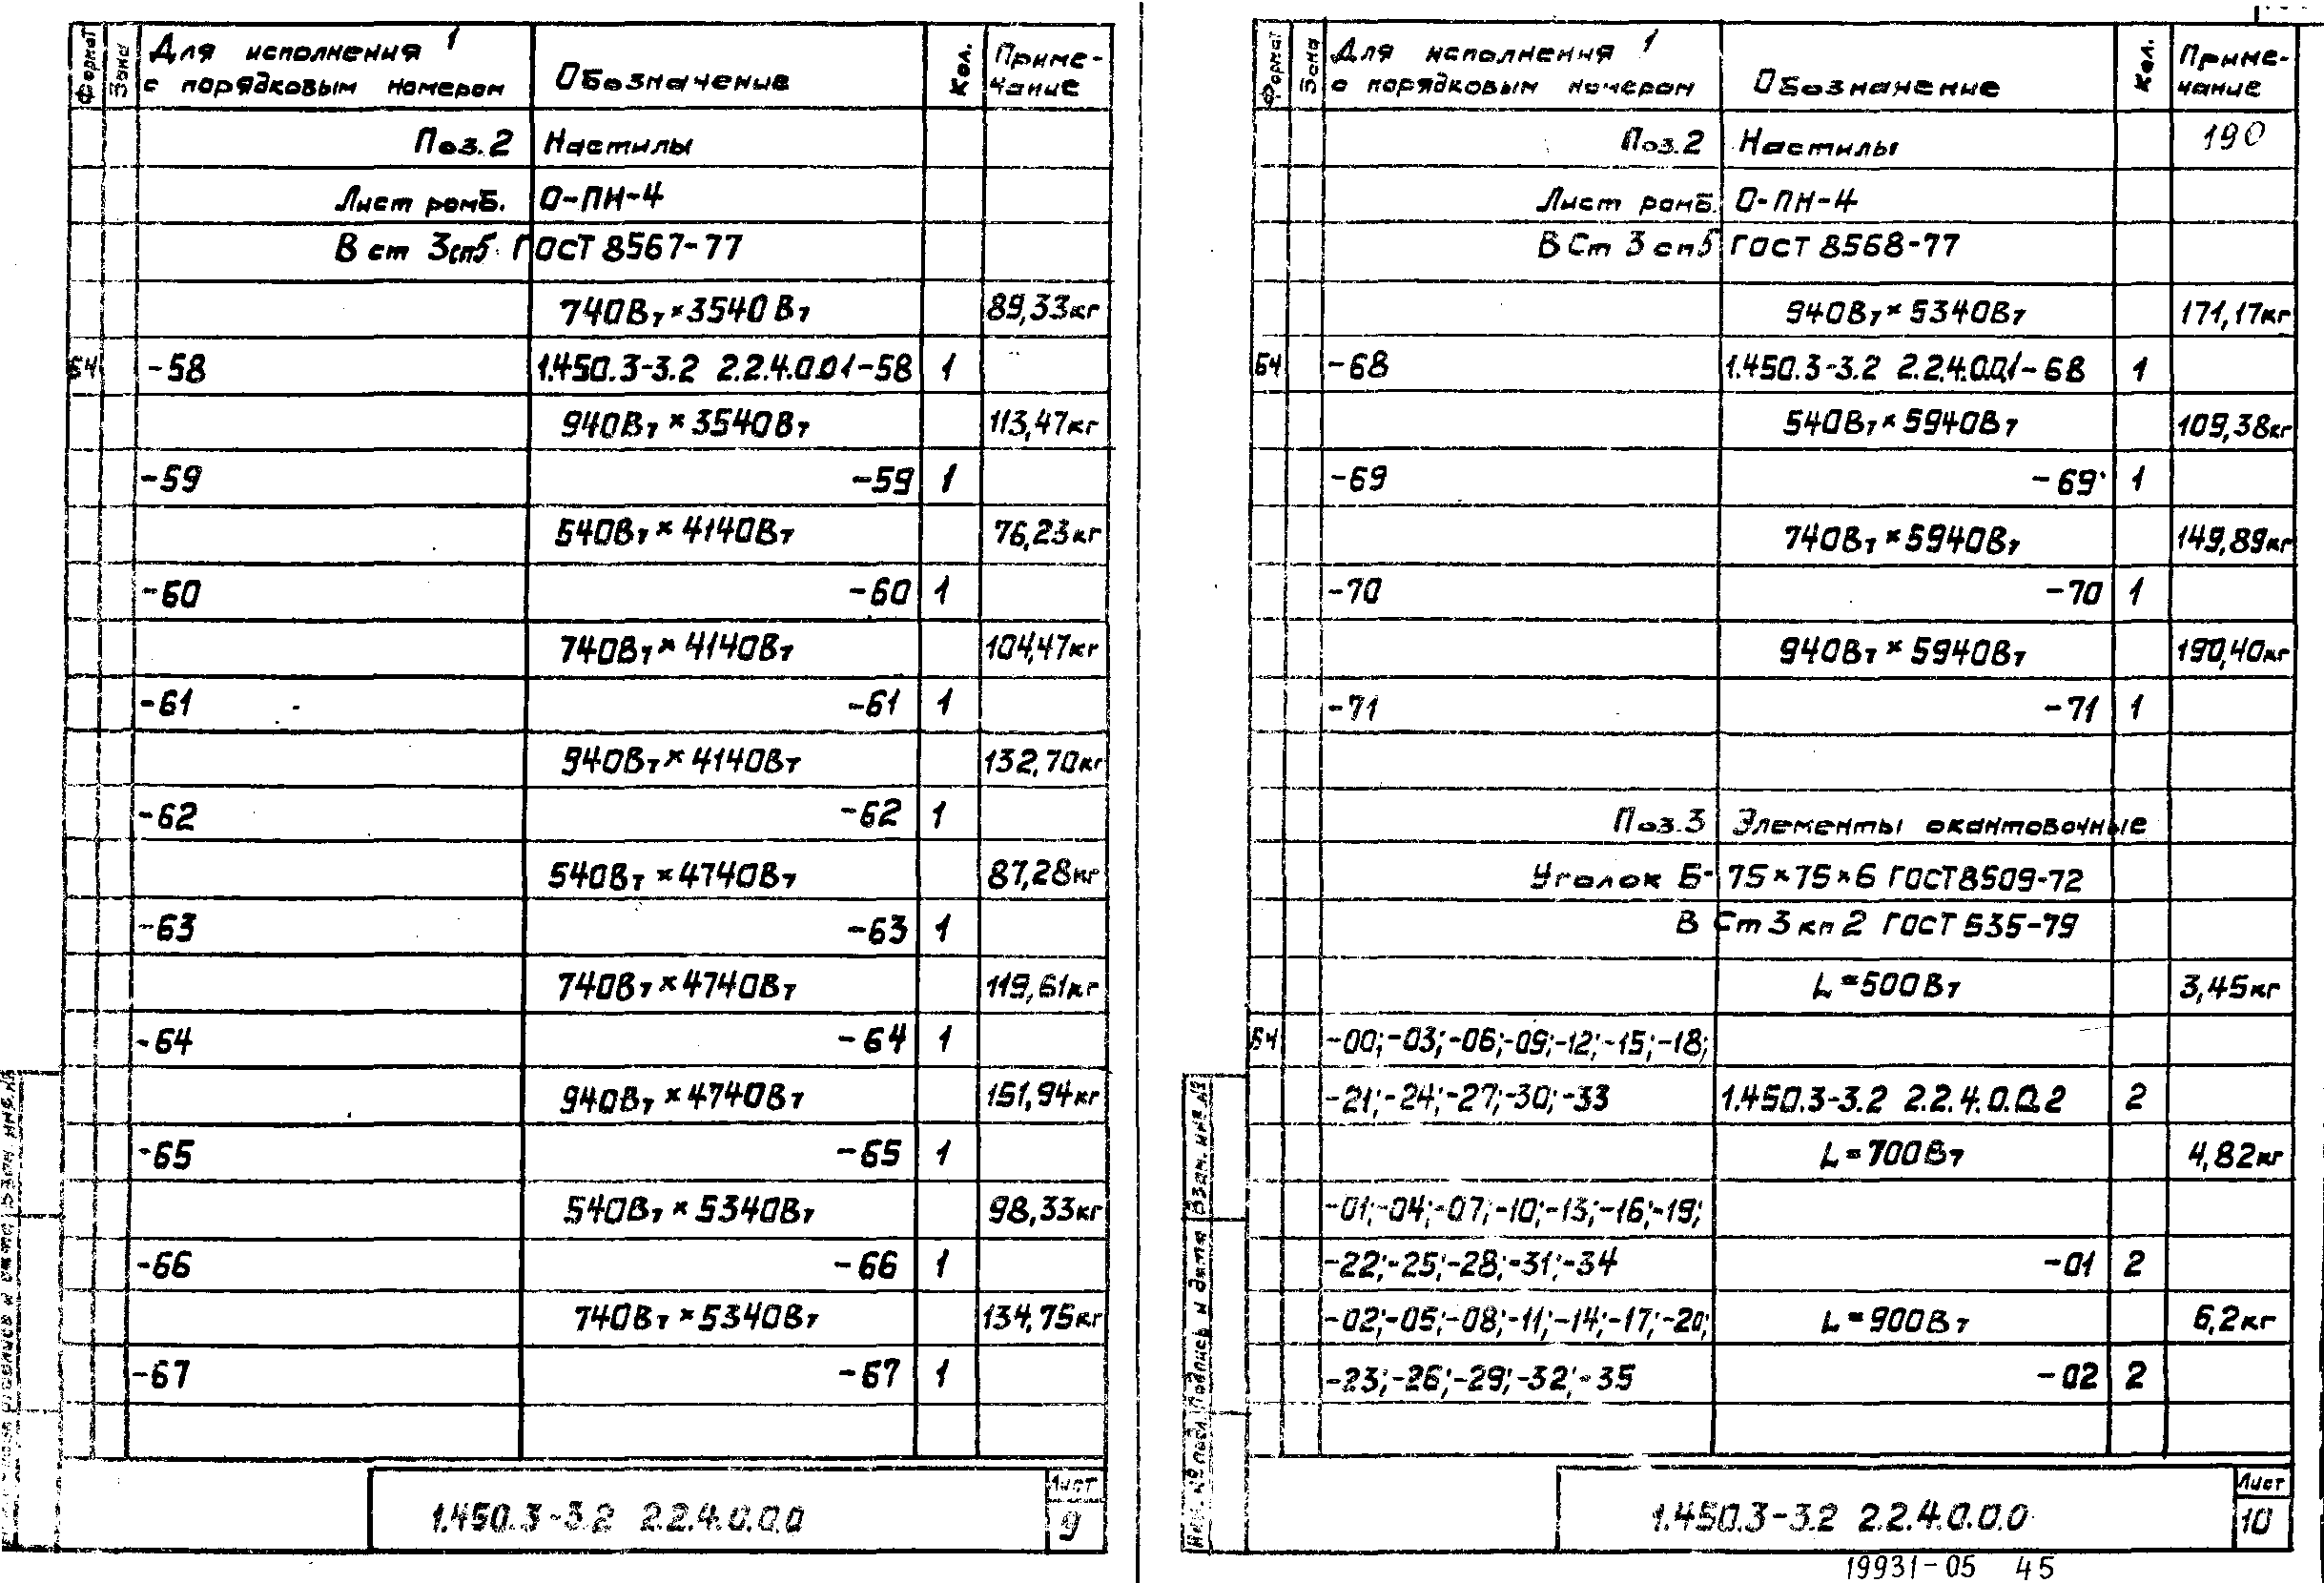 Формат Зона Для исполнения 1 с порядковым номером Обозначение Кол. Приме-чание
Поз.2 Настилы
Лист ромб. О-ПН-4
В ст 3сп5 ГОСТ 8567-77
740Вт×3540Вт 89,33кг
Б4 -58 1.450.3-3.2 2.2.4.0.01-58 1
940Вт×3540Вт 113,47кг
-59 -59 1
540Вт×4140Вт 76,23кг
-60 -60 1
740Вт×4140Вт 104,47кг
-61 -61 1
940Вт×4140Вт 132,70кг
-62 -62 1
540Вт×4740Вт 87,28кг
-63 -63 1
740Вт×4740Вт 119,61кг
-64 -64 1
940Вт×4740Вт 151,94кг
-65 -65 1
540Вт×5340Вт 98,33кг
-66 -66 1
740Вт×5340Вт 134,75кг
-67 -67 1
1.450.3-3.2 2.2.4.0.0.0
Лист
9
Формат Зона Для исполнения 1 с порядковым номером Обозначение Кол. Приме-чание
Поз.2 Настилы 190
Лист ромб. О-ПН-4
В Ст 3 сп5 ГОСТ 8568-77
940Вт×5340Вт 171,17кг
Б4 -68 1.450.3-3.2 2.2.4.0.0.1-68 1
540Вт×5940Вт 109,38кг
-69 -69 1
740Вт×5940Вт 149,89кг
-70 -70 1
940Вт×5940Вт 190,40кг
-71 -71 1
Поз.3 Элементы окантовочные
Уголок Б-75×75×6 ГОСТ 8509-72
В Ст 3 кп 2 ГОСТ 535-79
L=500Вт 3,45кг
Б4 -00;-03;-06;-09;-12;-15;-18;
-21;-24;-27;-30;-33 1.450.3-3.2 2.2.4.0.0.2 2
L=700Вт 4,82кг
-01;-04;-07;-10;-13;-16;-19;
-22;-25;-28;-31;-34 -01 2
-02;-05;-08;-11;-14;-17;-20; L=900Вт 6,2кг
-23;-26;-29;-32;-35 -02 2
Инв. № подл. Подпись и дата Взам. инв. №
1.450.3-3.2 2.2.4.0.0.0
Лист
10
19931-05 45